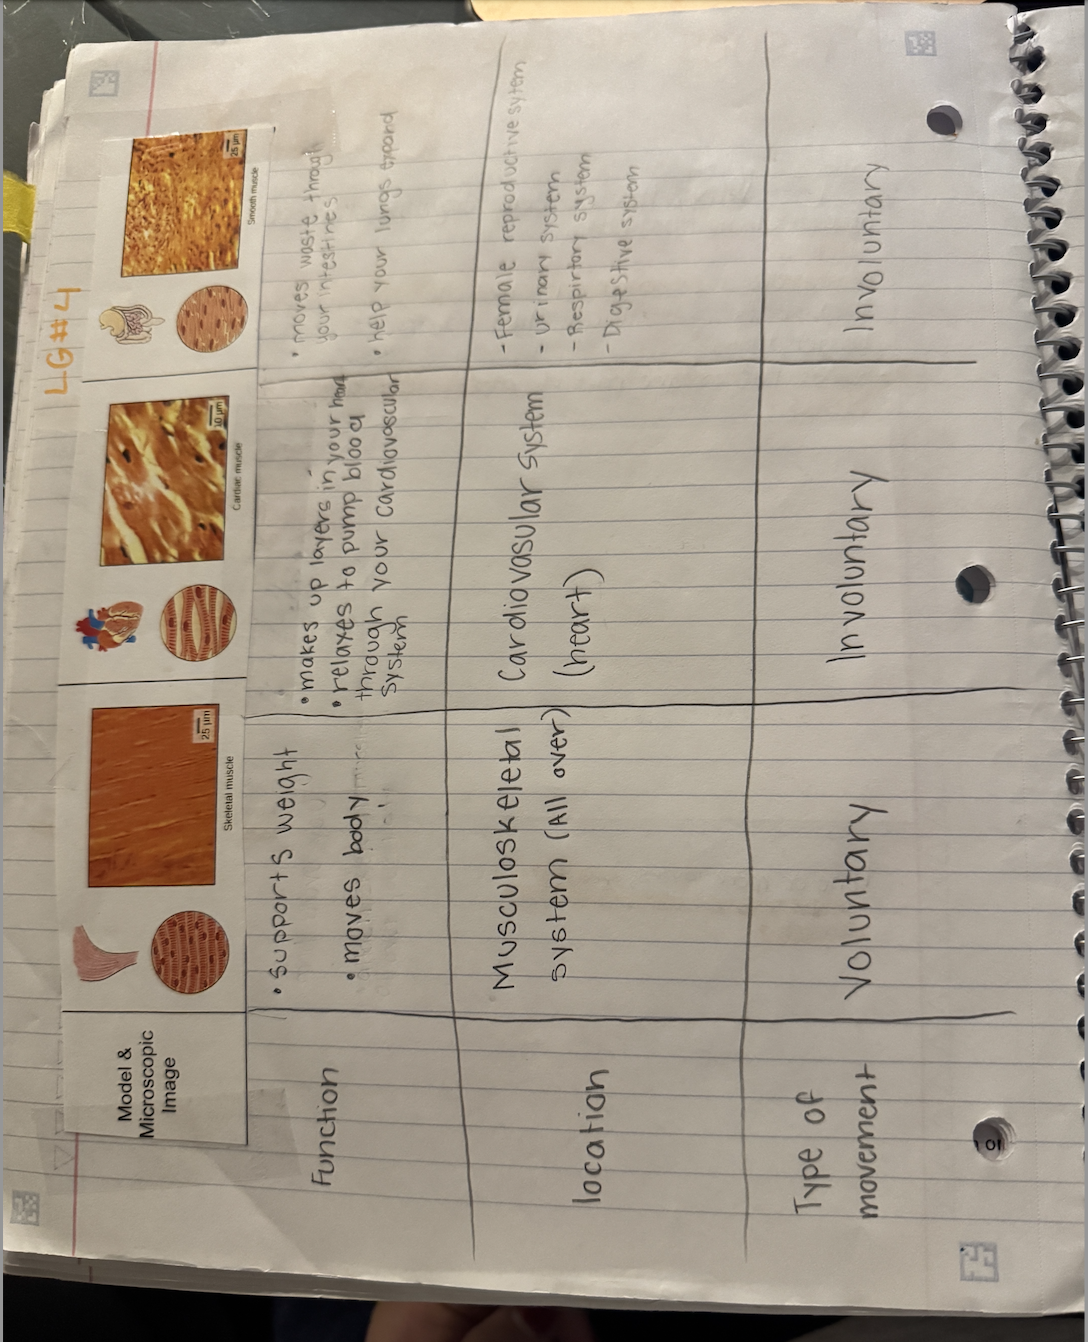 LG#4
Model &
Microscopic
Image
25 µm
Skeletal muscle
10 µm
Cardiac muscle
25 µm
Smooth muscle
Function
• supports weight
• moves body
• makes up layers in your heart
• relaxes to pump blood
through your cardiovascular
system
• moves waste through
your intestines
• help your lungs expand
location
Musculoskeletal
system (All over)
Cardiovasular System
(heart)
- Female reproductive sytem
- urinary system
- Respirtory system
- Digestive system
Type of
movement
Voluntary
Involuntary
Involuntary